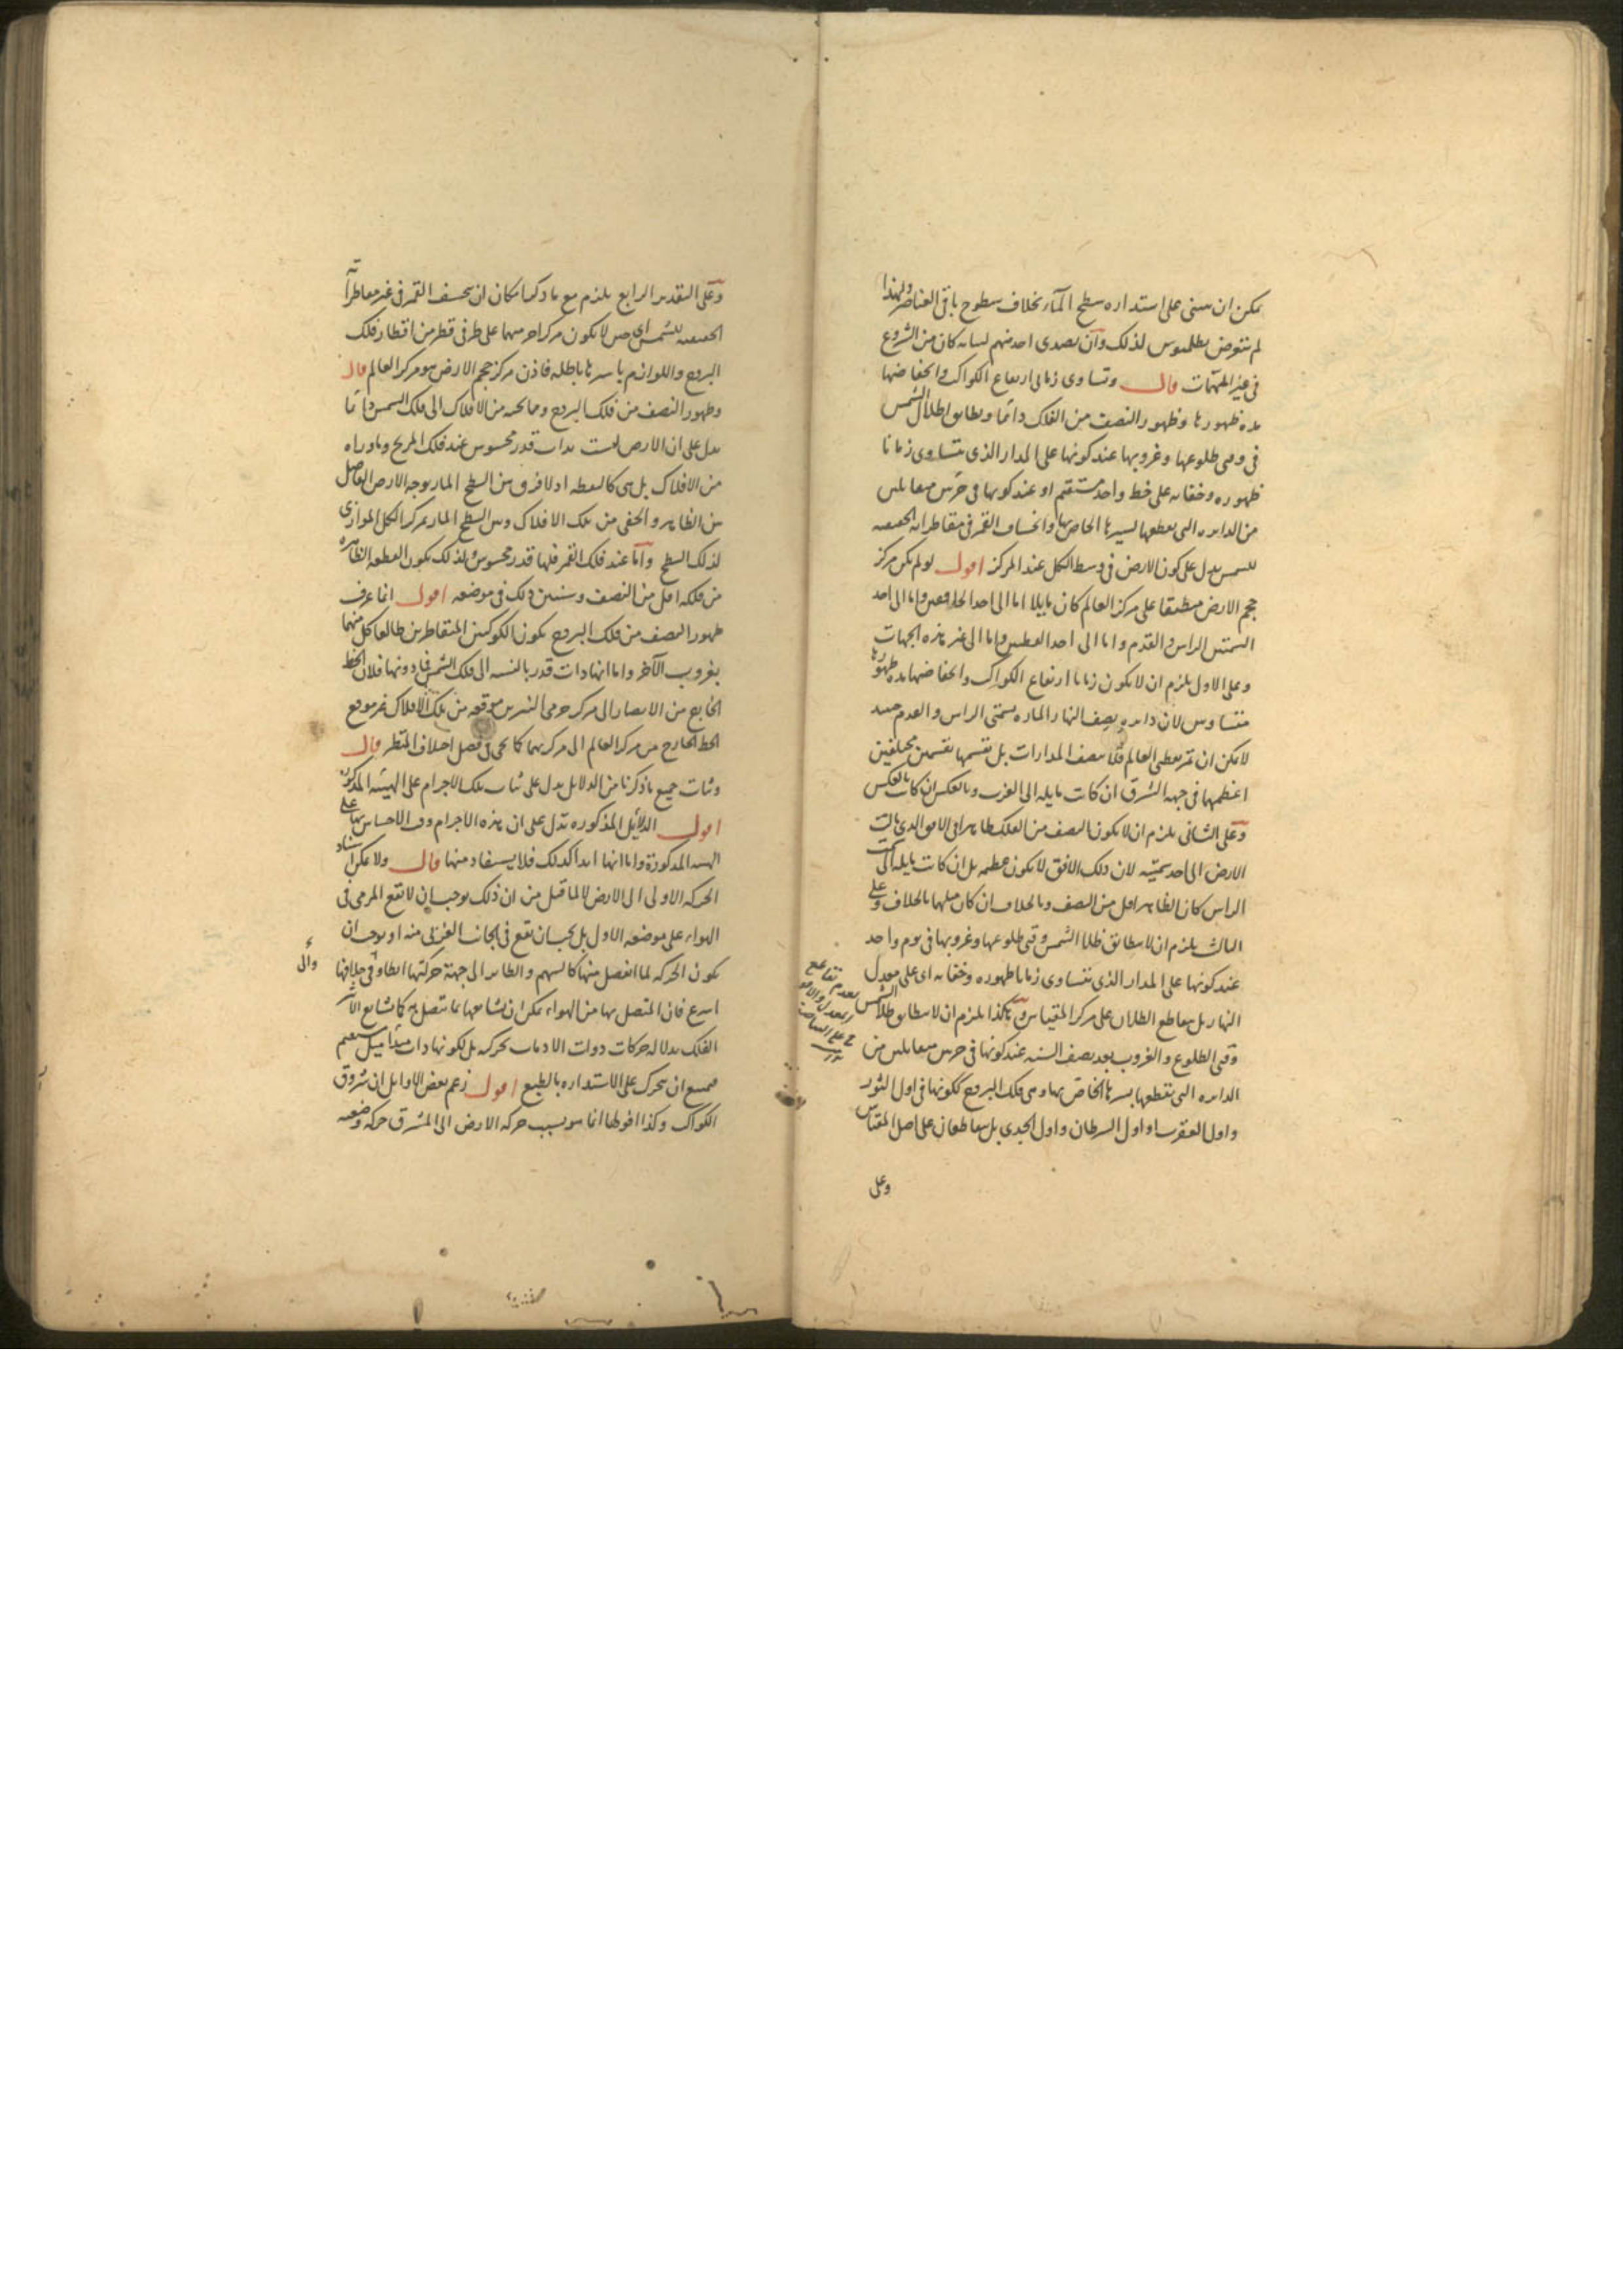 يمكن ان يبنى على استداره سطح المآء بخلاف سطوح باقى العناصر ولهذا
لم يتعرض بطلميوس لذلك وآن تصدى احد منهم لبيانه كان من الشروع
فى غير المهمّات قال وتساوى زمانى ارتفاع الكواكب وانخفاضها
مده ظهورها وظهور النصف من الفلك دائما وتطابق اظلال الشمس
فى وقتى طلوعها وغروبها عند كونها على المدار الذى يتساوى زمانا
ظهوره وخفائه على خط واحد مستقيم او عند كونها فى جزئين متقابلين
من الدايره التى تقطعها بسيرها الخاص بها وانخساف القمر فى مقاطراته الحقيقيه
للشمس يدل على كون الارض فى وسط الكل عند المركز اقول لو لم يكن مركز
حجم الارض منطبقا على مركز العالم كان مايلا اما الى احد الخافقين واما الى احد
السمتين الراس والقدم واما الى احد القطبين واما الى غير هذه الجهات
وعلى الاول يلزم ان لا يكون زمانا ارتفاع الكواكب وانخفاضها مده ظهورها
متساويين لان دايره نصف النهار الماره بسمتى الراس والقدم حينئذ
لا يمكن ان تمر بقطبى العالم فلا تنصف المدارات بل تقسمها بقسمين مختلفين
اعظمهما فى جهه الشرق ان كانت مايله الى الغرب وبالعكس ان كانت بالعكس
وعلى الثانى يلزم ان لا يكون النصف من الفلك ظاهرا فى الافق الذى مالت
الارض الى احد سمتيه لان ذلك الافق لا يكون عظيمه بل ان كانت مايله الى سمت
الراس كان الظاهر اقل من النصف وبالخلاف ان كان ميلها بالخلاف وعلى
الثالث يلزم ان لا يتطابق ظلا الشمس وقتى طلوعها وغروبها فى يوم واحد
عند كونها على المدار الذى يتساوى زمانا ظهوره وخفائه اى على معدل
النهار بل يتقاطع الظلان على مركز المقياس وهكذا يلزم ان لا يتطابق ظلا الشمس
وقتى الطلوع والغروب بعد نصف السنه عند كونها فى جزئين متقابلين من
الدايره التى تقطعها بسيرها الخاص بها وهى فلك البروج ككونها فى اول الثور
واول العقرب او اول السرطان واول الجدى بل يتقاطعان على اصل المقياس
وعلى
وعلى التقدير الرابع يلزم مع ما ذكرنا امكان ان ينخسف القمر فى غير مقاطراته
الحقيقيه للشمس اى حين لا يكون مركزا جرميهما على طرفى قطر من اقطار فلك
البروج واللوازم باسرها باطله فاذن مركز حجم الارض هو مركز العالم قال
وظهور النصف من فلك البروج وما تحته من الافلاك الى فلك الشمس دائما
يدل على ان الارض ليست بذات قدر محسوس عند فلك المريخ وما وراه
من الافلاك بل هى كالنقطه اذ لا فرق بين السطح المار بوجه الارض الفاصل
بين الظاهر والخفى من تلك الافلاك وبين السطح المار بمركز الكل الموازى
لذلك السطح وآما عند فلك القمر فلها قدر محسوس ولذلك يكون القطعه الظاهره
من فلكه اقل من النصف وسنبين ذلك فى موضعه اقول انما عرف
ظهور النصف من فلك البروج بكون الكوكبين المتقاطرين طالعا كل منهما
بغروب الآخر واما انها ذات قدر بالنسبه الى فلك الشمس فما دونها فلان الخط
الخارج من الابصار الى مركز جرمى النيرين موقعه من تلك الافلاك غير موقع
الخط الخارج من مركز العالم الى مركزيهما كما يجى فى فصل اختلاف المنظر قال
وثبات جميع ما ذكرنا من الدلايل يدل على ثبات تلك الاجرام على الهيئه المذكوره
اقول الدلائل المذكوره تدل على ان هذه الاجرام وقت الاحساس بها على
الهيئه المذكورة واما انها ابدا كذلك فلا يستفاد منها قال ولا يمكن اسناد
الحركه الاولى الى الارض لا لما قيل من ان ذلك يوجب ان لا يقع المرمى فى
الهواء على موضعه الاول بل يجب ان يقع فى الجانب الغربى منه او يوجب ان
يكون الحركه لما انفصل منها كالسهم والطاير الى جهة حركتها ابطا وفى خلافها
اسرع فان المتصل بها من الهواء يمكن ان يشايعها بما يتصل به كما يشايع الاثير
الفلك بدلاله حركات ذوات الاذناب بحركته بل لكونها ذات مبدأ ميل مستقيم
فيمتنع ان يتحرك على الاستداره بالطبع اقول زعم بعض الاوايل ان شروق
الكواكب وكذا افولها انما هو بسبب حركه الارض الى المشرق حركه وضعيه